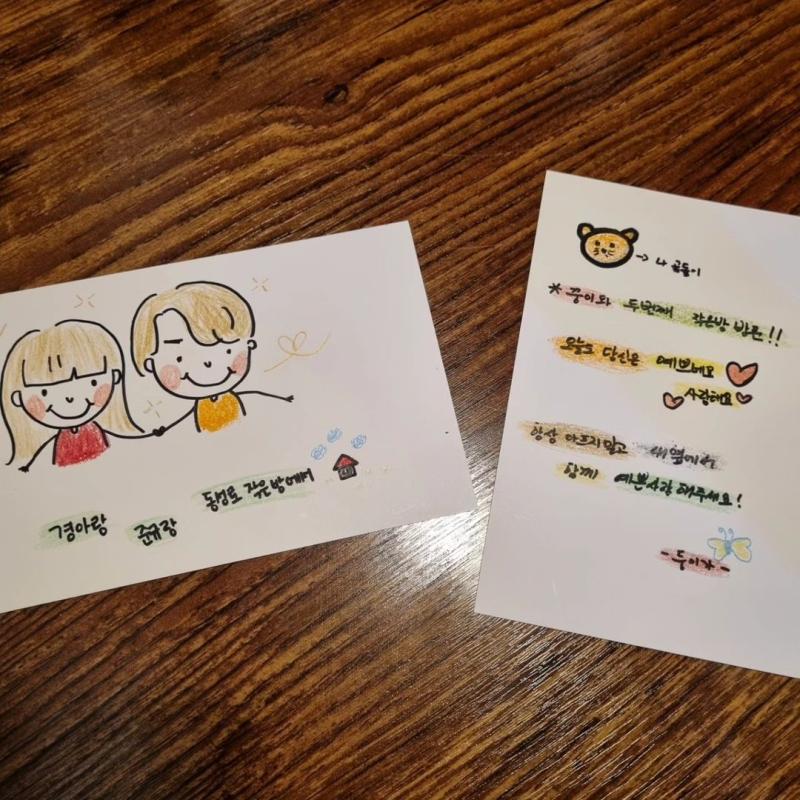 경아랑 준규랑 동성로 작은방에서
→ 나 곰돌이
* 쭝이와 두번째 작은방 방문!!
오늘도 당신은 예쁘네요
사랑해요
항상 아프지말고 내 옆에서
함께 예쁜사랑 해주세요!
- 두이가 -